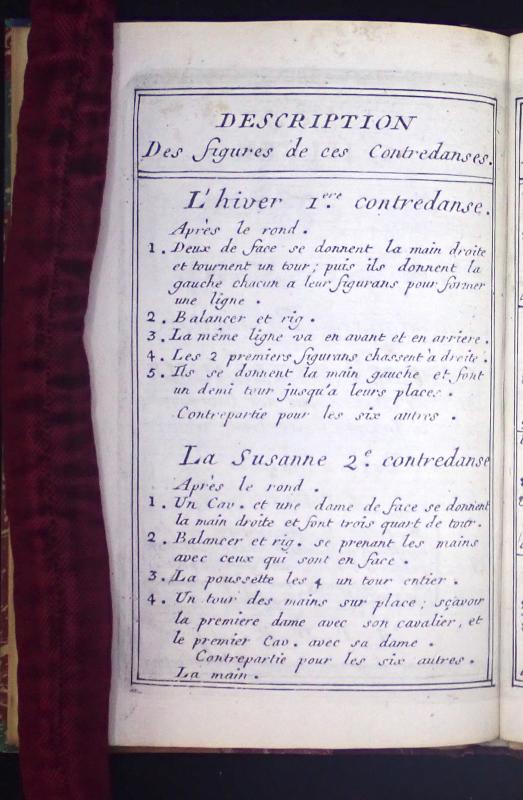 DESCRIPTION
Des figures de ces Contredanses.
L'hiver 1.ere contredanse.
Après le rond.
1. Deux de face se donnent la main droite
et tournent un tour; puis ils donnent la
gauche chacun a leur figurans pour former
une ligne.
2. Balancer et rig.
3. La même ligne va en avant et en arriere.
4. Les 2 premiers figurans chassent a droite.
5. Ils se donnent la main gauche et font
un demi tour jusqu'a leurs places.
Contrepartie pour les six autres.
La Susanne 2.e contredanse
Après le rond.
1. Un Cav. et une dame de face se donnent
la main droite et font trois quart de tour.
2. Balancer et rig. se prenant les mains
avec ceux qui sont en face.
3. La poussette les 4 un tour entier.
4. Un tour des mains sur place; sçavoir
la premiere dame avec son cavalier, et
le premier Cav. avec sa dame.
Contrepartie pour les six autres.
La main.